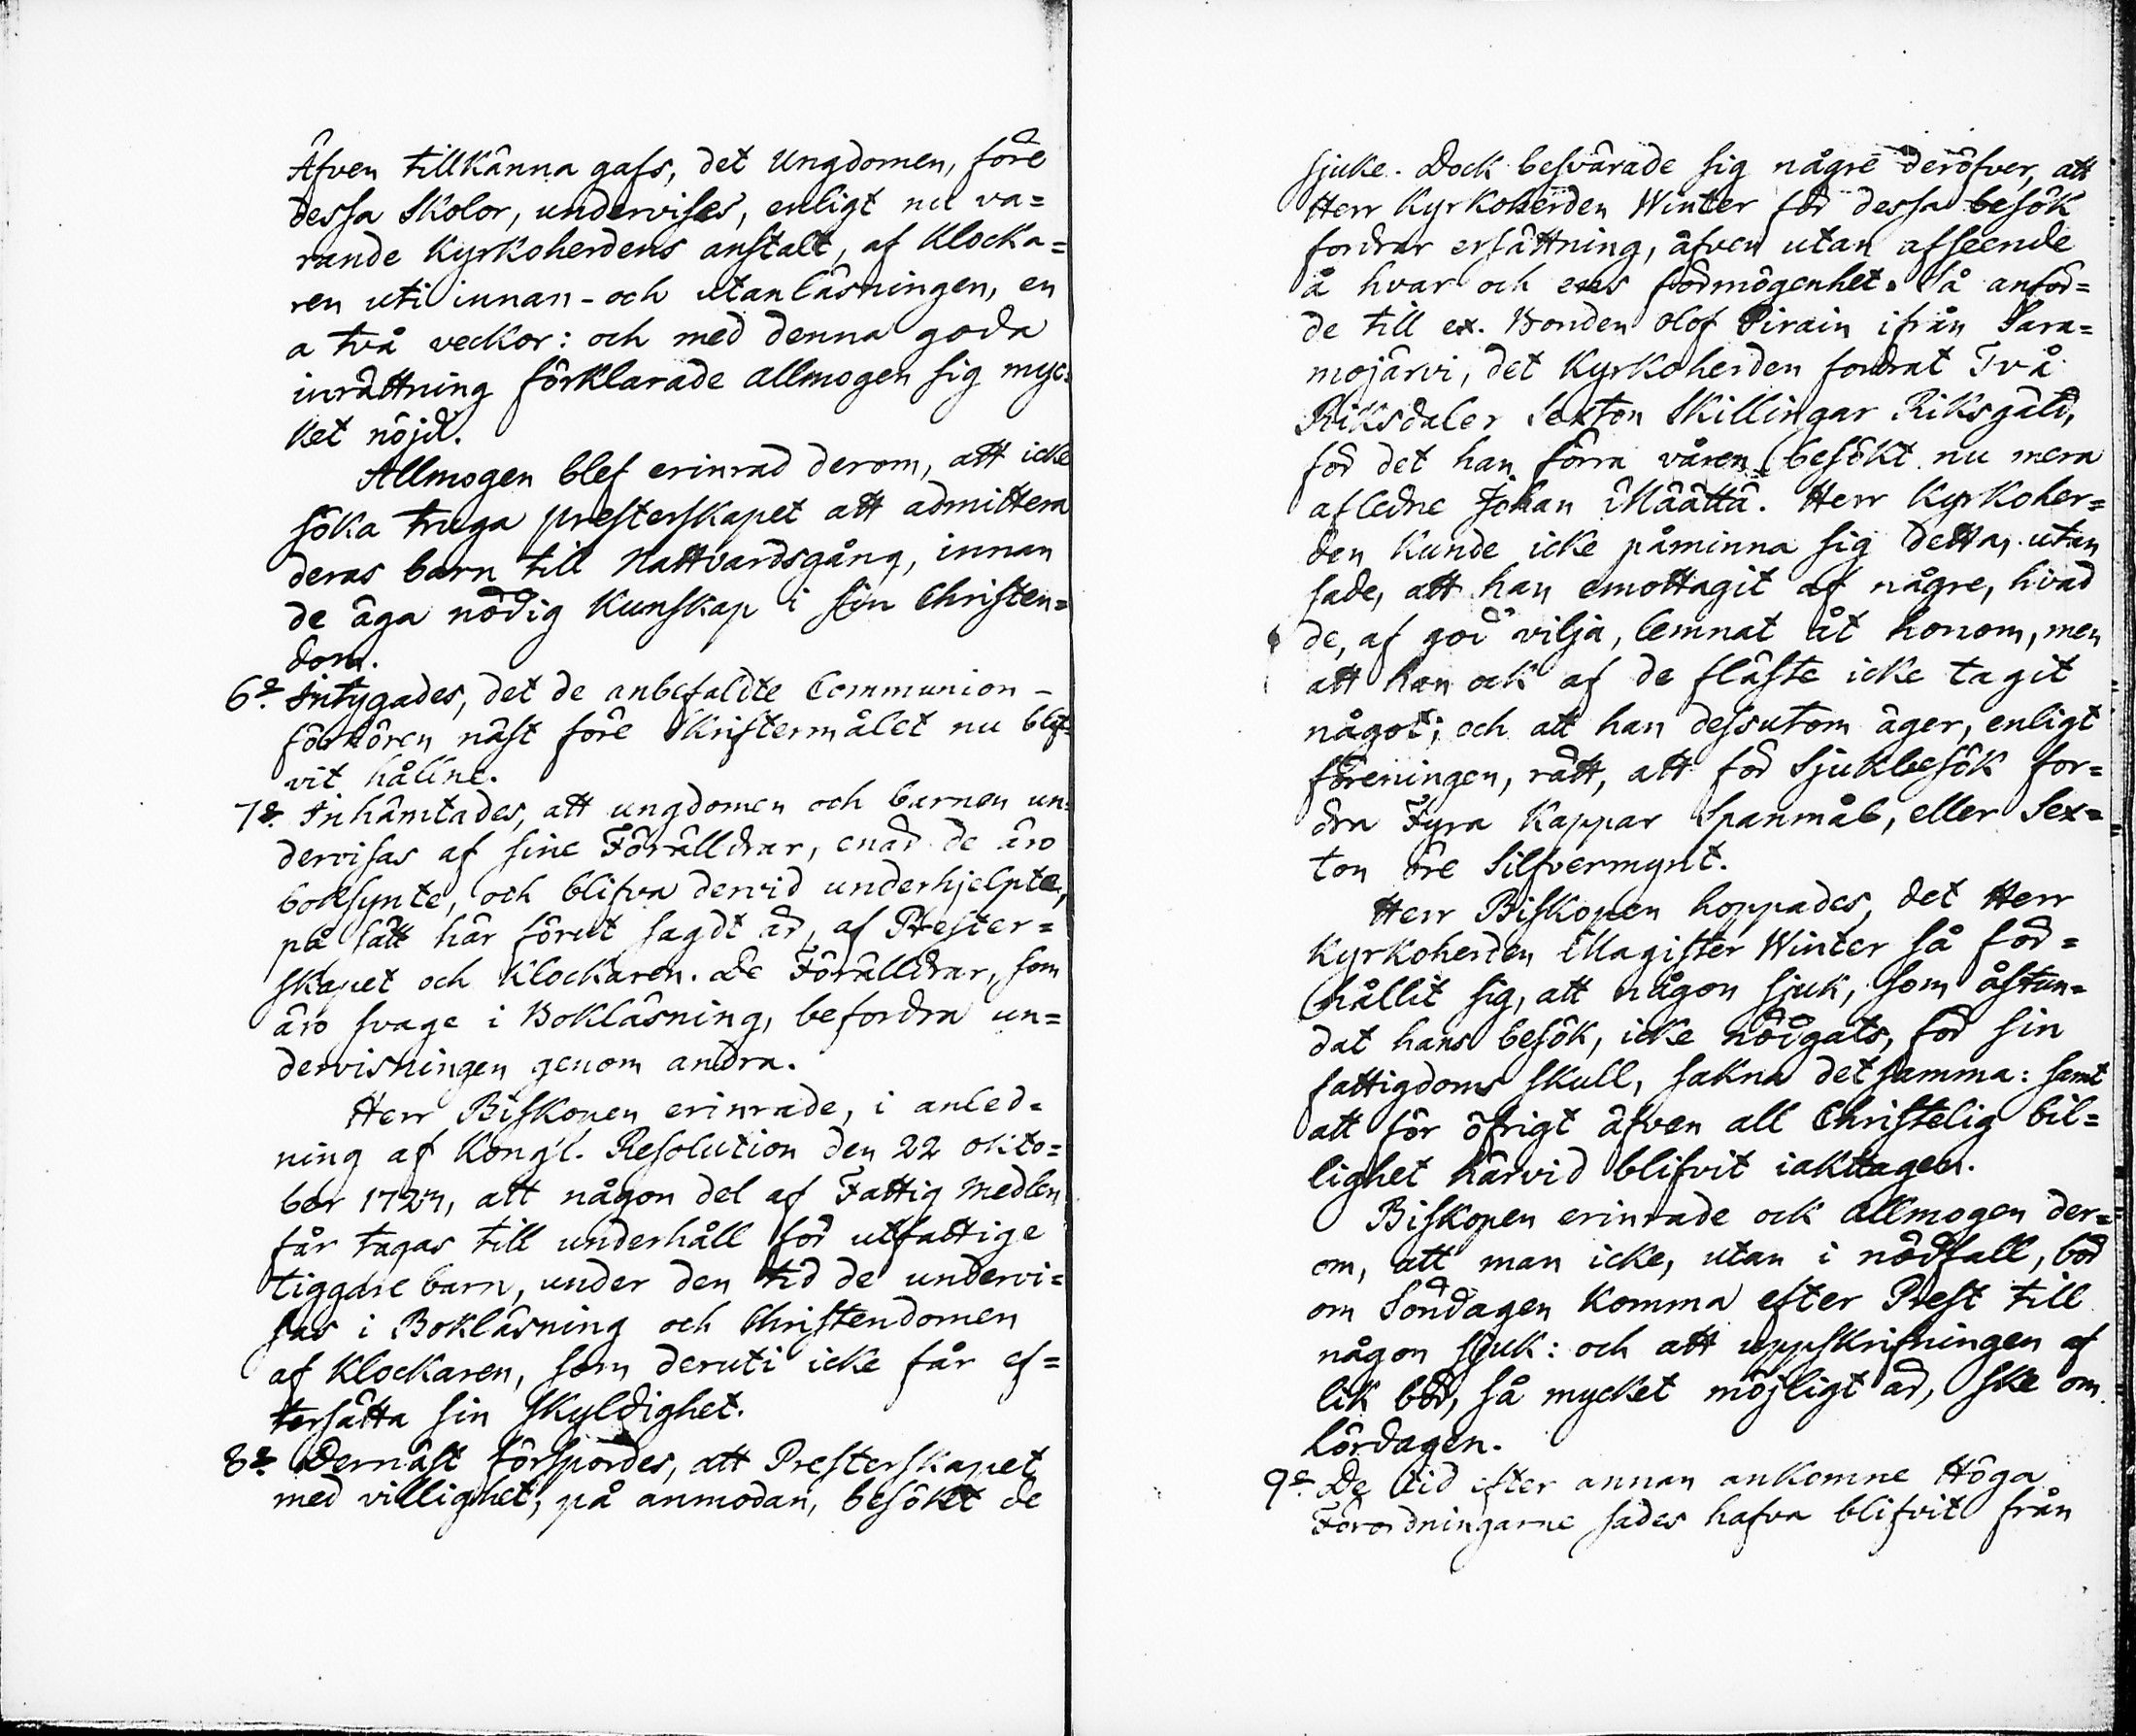 Äfven tillkänna gafs, det Ungdomen, före
dessa Skolor, undervises, enligt nu va=
rande Kyrkoherdens anstalt, af Klocka=
ren uti innan- och utanläsningen, en
a två veckor: och med denna goda
inrättning förklarade allmogen sig myc=
ket nöjd.
Allmogen blef erinrad derom, att icke
söka truga presterskapet att admittera
deras barn till Nattvardsgång, innan
de äga nödig Kunskap i sin Christen=
dom.
6º. Intygades, det de anbefaldte Communion-
förhören näst före Skriftermålet nu blif=
vit hållne.
7º. Inhämtades, att ungdomen och barnen un=
dervisas af sine Föräldrar, enär de äro
boksynte, och blifva dervid underhjelpte,
på sätt här förut sagdt är, af Prester=
skapet och Klockaren. De Föräldrar, som
äro svage i Bokläsning, befordra un=
dervisningen genom andra.
Herr Biskopen erinrade, i anled=
ning af Kongl. Resolution den 22 Okto=
ber 1724, att någon del af Fattig Medlen
får tagas till underhåll för utfattige
tiggare barn, under den tid de undervi=
sas i Bokläsning och Christendomen
af Klockaren, som deruti icke får ef=
tersätta sin skyldighet.
8º. Dernäst förspordes, att Presterskapet
med villighet, på anmodan, besökt de
sjuke. Dock besvärade sig någre deröfver, att
Herr Kyrkoherden Winter för dessa besök
fordrar ersättning, äfven utan afseende
å hvar och ens förmögenhet. Så anför=
de till ex. Bonden Olof Pirain ifrån Sara=
mojärvi, det Kyrkoherden fordrat Två
Riksdaler Sexton Skillingar Riksgäld,
för det han förra våren besökt nu mera
aflidne Johan Määttä. Herr Kyrkoher=
den kunde icke påminna sig detta, utan
sade, att han emottagit af någre, hvad
de, af god vilja, lemnat åt honom, men
att han ock af de fläste icke tagit
något; och att han dessutom äger, enligt
föreningen, rätt, att för Sjukbesök for=
dra Fyra Kappar Spanmål, eller Sex=
ton öre Silfvermynt.
Herr Biskopen hoppades, det Herr
Kyrkoherden Magister Winter så för=
hållit sig, att någon sjuk, som åstun=
dat hans besök, icke nödgats, för sin
fattigdoms skull, sakna detsamma: samt
att för öfrigt äfven all Christelig bil=
lighet härvid blifvit iakttagen.
Biskopen erinrade ock allmogen der=
om, att man icke, utan i nödfall, bör
om Söndagen komma efter Prest till
någon sjuk: och att uppskrifningen af
lik bör, så mycket möjligt är, ske om
Lördagen.
9º. De tid efter annan ankomne Höga
Förordningarne sades hafva blifvit från